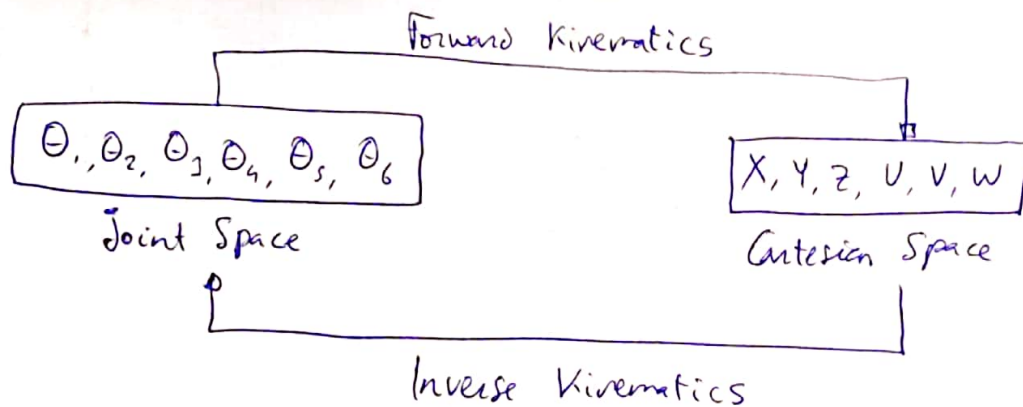 Forward Kinematics
θ₁, θ₂, θ₃, θ₄, θ₅, θ₆
X, Y, Z, U, V, W
Joint Space
Cartesian Space
Inverse Kinematics